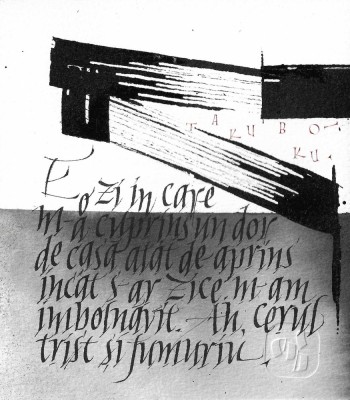 TAKUBO
KU.
E o zi in care
m-a cuprins un dor
de casă atât de aprins
încât s-ar zice m-am
îmbolnăvit. Ah, cerul
trist și fumuriu